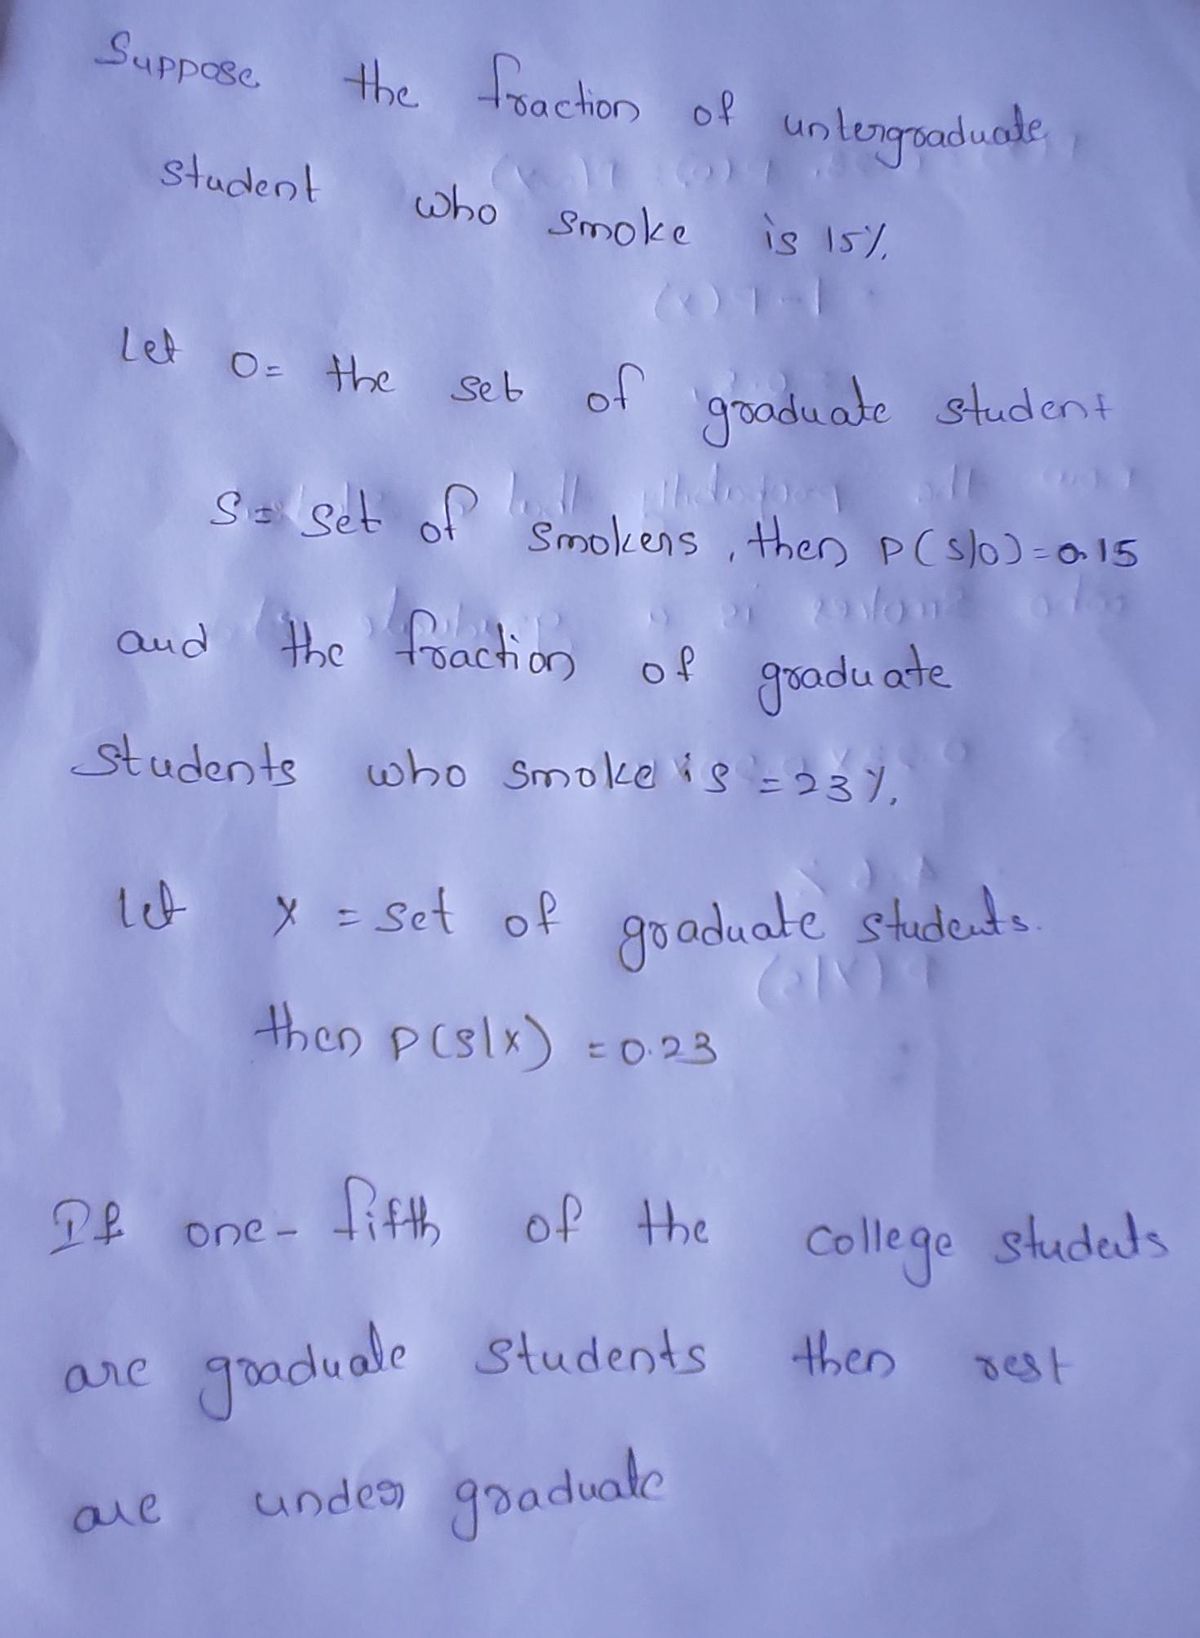 Suppose the fraction of untergraduate
student who smoke is 15%.
Let O= the set of graduate student
S= set of smokers, then P(S|O)=0.15
and the fraction of graduate
students who smoke is =23%.
let X = set of graduate students.
then P(S|X) =0.23
If one-fifth of the college students
are graduate students then rest
are under graduate